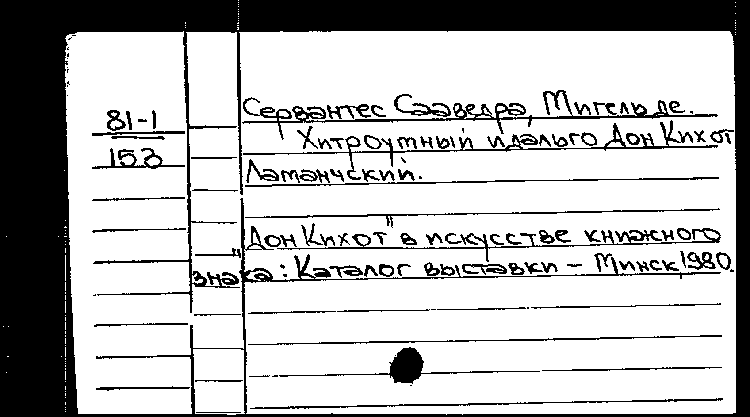 81-1
153
Сервантес Сааведра, Мигель де.
Хитроумный идальго Дон Кихот
Ламанчский.
"Дон Кихот" в искусстве книжного
знака: Каталог выставки - Минск, 1980.